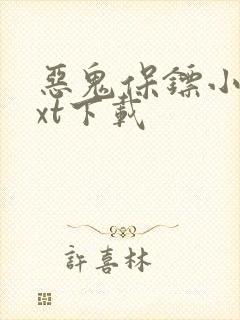 惡鬼保鏢小
xt下載
許喜林